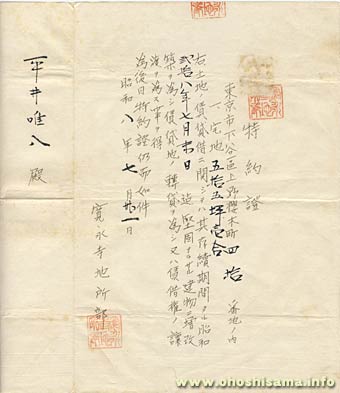 特約證
東京市下谷區上野櫻木町四拾番地ノ内
一、宅地 五拾五坪壱合
右土地ノ賃貸借ニ関シテハ其存續期間タル昭和
弐拾八年七月末日迄堅固ナラザル建物ニ増改
築ヲ為シ賃貸地ノ轉貸ヲ為シ又ハ賃借權ノ譲
渡ヲ為ス事ヲ得
為後日特約證仍而如件
昭和八年七月廿一日
寛永寺地所部
平井唯八 殿
www.ohoshisama.info